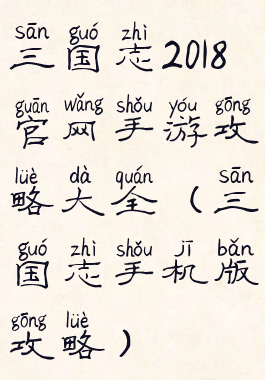 sān guó zhì
三国志2018
guān wǎng shǒu yóu gōng
官网手游攻
lüè dà quán sān
略大全（三
guó zhì shǒu jī bǎn
国志手机版
gōng lüè
攻略）